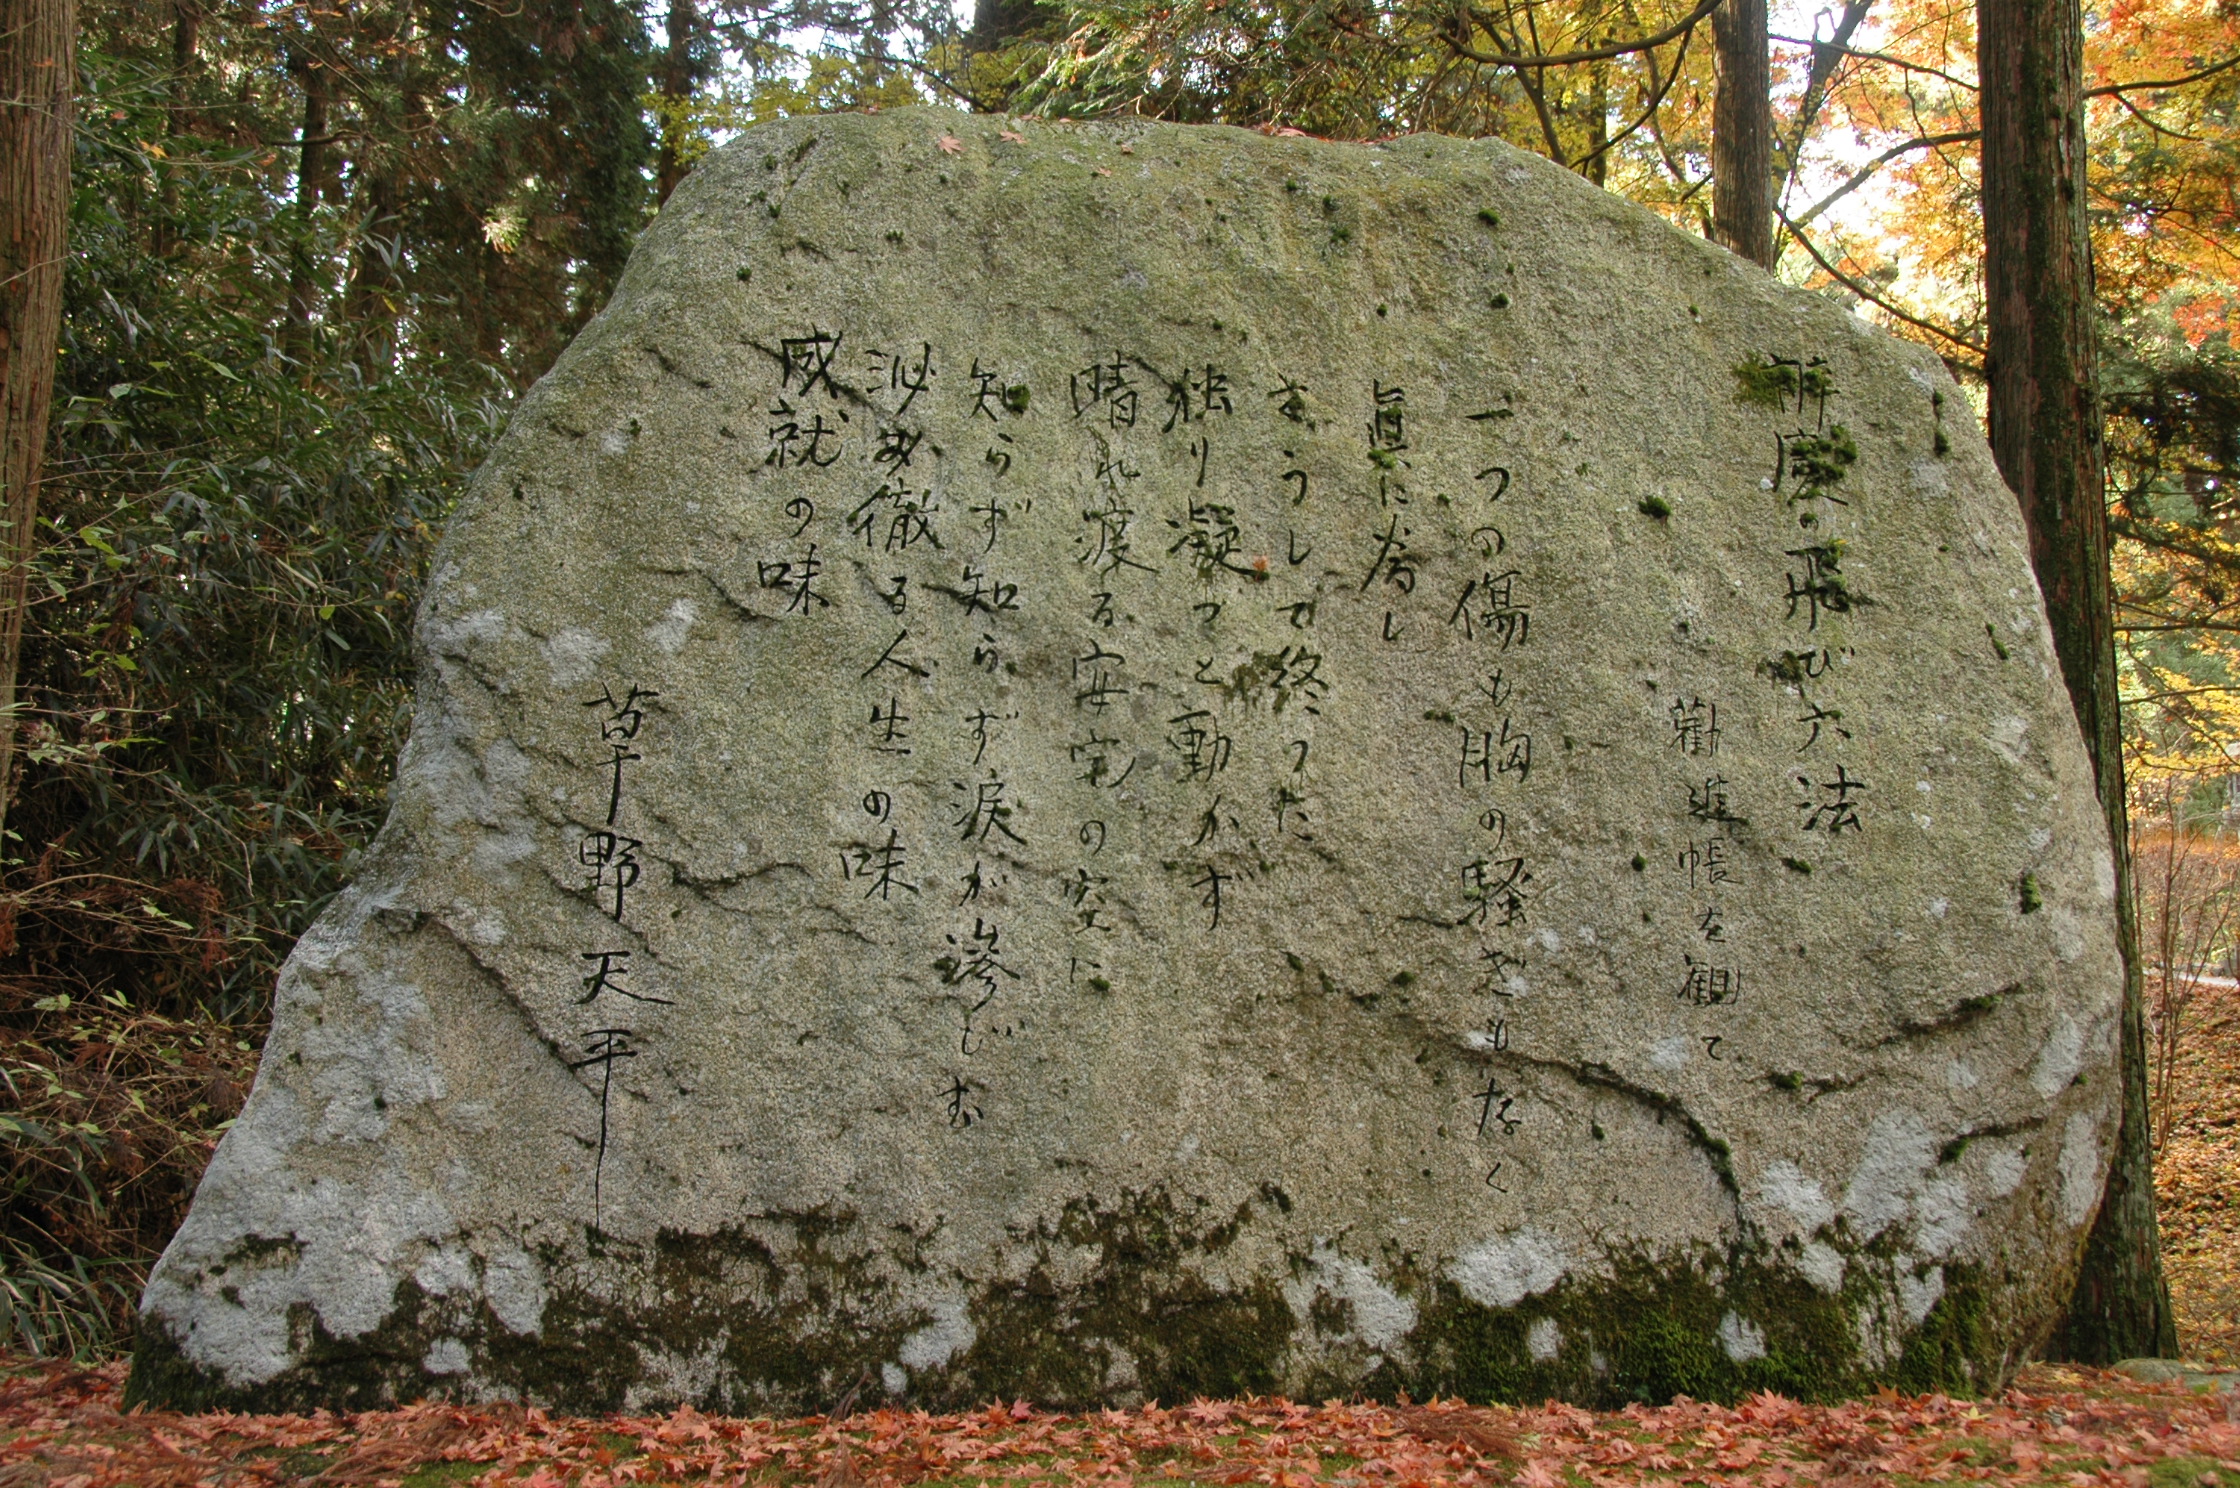 辨慶の飛び六法
勧進帳を観て
一つの傷も胸の騒ぎもなく
眞に劳し
さうして終った
独り凝つと動かず
晴れ渡る安宅の空に
知らず知らず涙が滲じむ
沁み徹る人生の味
成就の味
草野天平